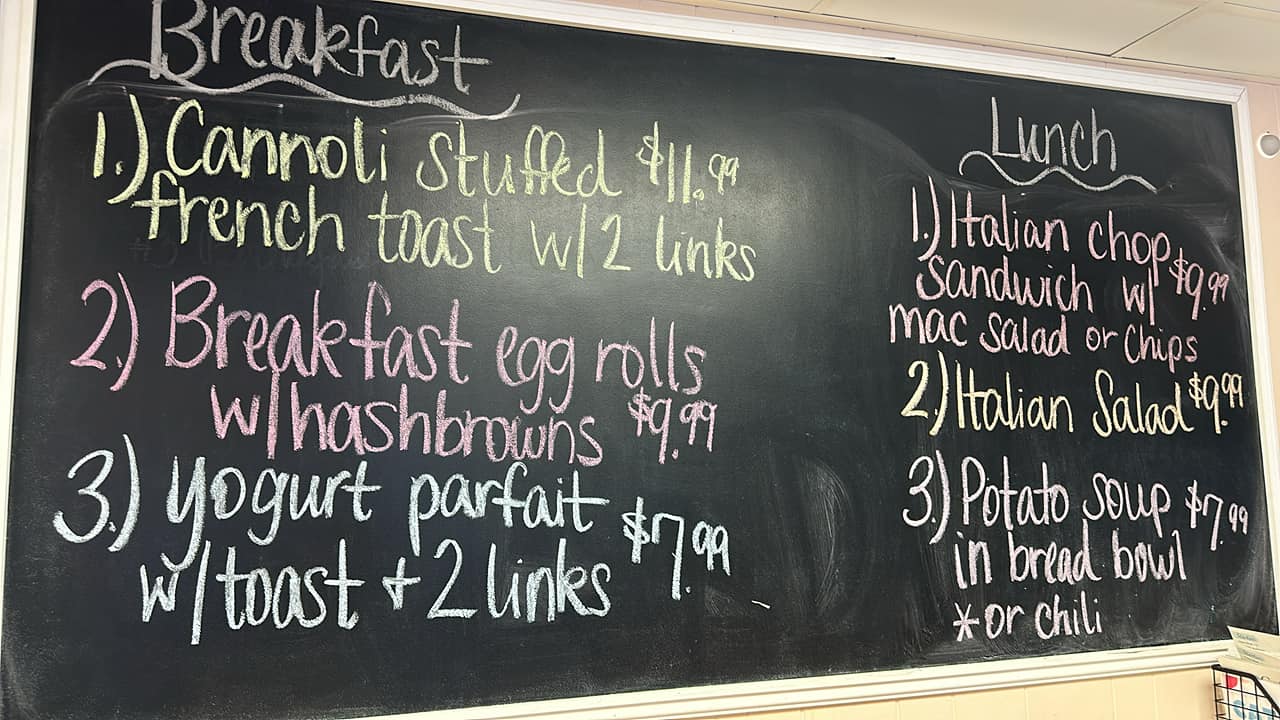 Breakfast
1.) Cannoli stuffed $11.99
french toast w/2 links
2.) Breakfast egg rolls
w/hashbrowns $9.99
3.) yogurt parfait
w/toast + 2 links $7.99
Lunch
1.) Italian chop
sandwich w/ $9.99
mac salad or chips
2.) Italian Salad $9.99
3.) Potato soup $7.99
in bread bowl
*or chili